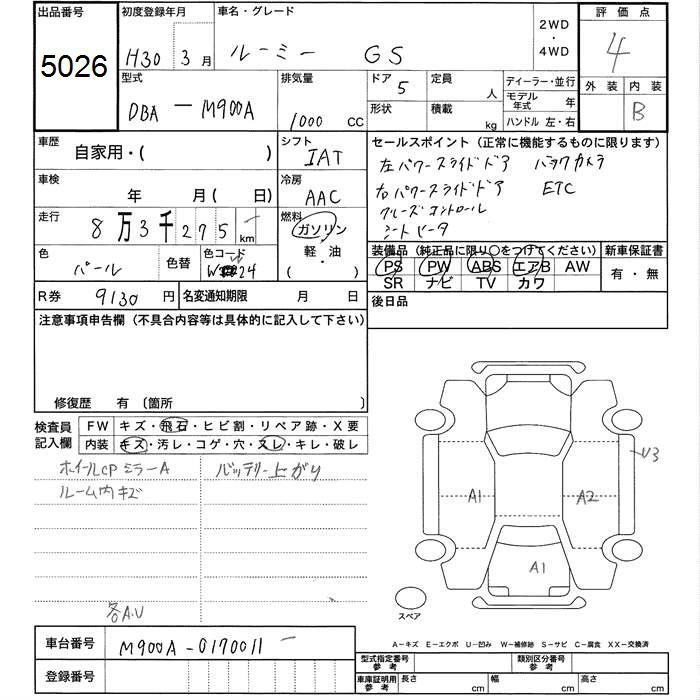 出品番号 初度登録年月 車名・グレード 2WD ・ 4WD 評価点
5026 H30 3月 ルーミー GS 4
型式 排気量 ドア 定員 ディーラー・並行 外装 内装
DBA - M900A 1000 CC 5 人 モデル年式 年 B
形状 積載 kg ハンドル 左・右
車歴 自家用・( ) シフト IAT セールスポイント (正常に機能するものに限ります)
左パワースライドドア バックカメラ
車検 年 月( 日) 冷房 AAC 右パワースライドドア ETC
走行 8万3千275 km 燃料 ガソリン・軽油 ( ) クルーズコントロール
シートヒータ
色 パール 色替 色コード W24 装備品 (純正品に限り○をつけてください) 新車保証書
PS PW ABS エアB AW 有・無
SR ナビ TV カワ
R券 9130円 名変通知期限 月 日 後日品
注意事項申告欄 (不具合内容等は具体的に記入して下さい)
修復歴 有 〔箇所 〕
検査員記入欄 FW キズ・飛石・ヒビ割・リペア跡・X要
内装 キズ・汚レ・コゲ・穴・スレ・キレ・破レ
ホイールCP ミラーA バッテリー上がり
ルーム内キズ
各A.U
U3
A1 A2
A1
スペア
A-キズ E-エクボ U-凹み W-補修跡 S-サビ C-腐食 XX-交換済
車台番号 M900A-0170011
登録番号
型式指定番号 参考 類別区分番号 参考
車庫証明用 参考 長さ cm 幅 cm 高さ cm